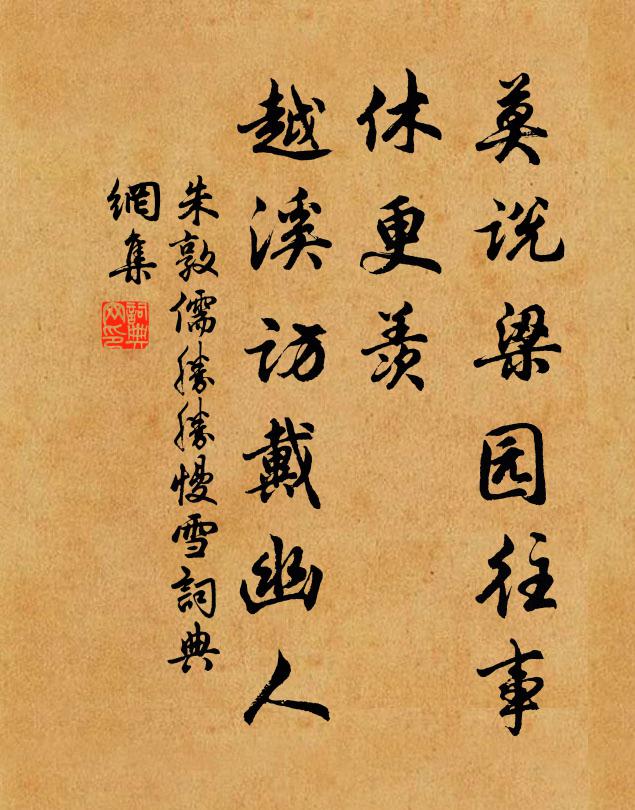 莫说梁园往事
休更羡
越溪访戴幽人
朱敦儒勝勝慢雪詞典
網集
詞典
网印